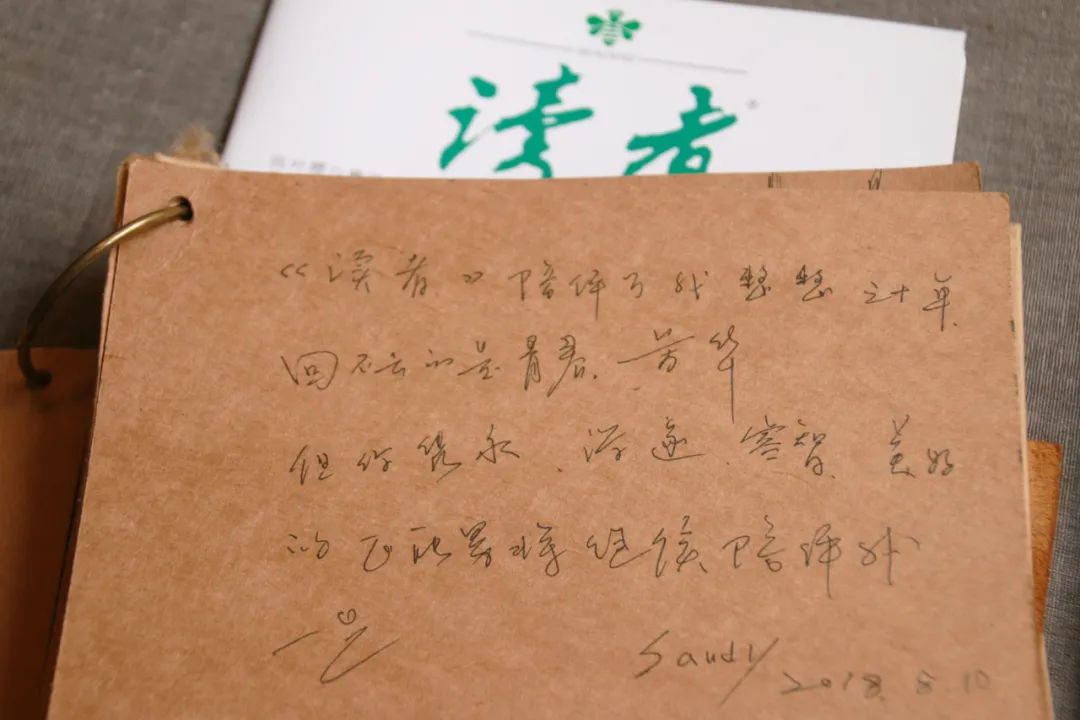 读者
《读者》陪伴了我整整三十年
回不去的是青春、芳华
但你隽永、深邃、睿智、美好
的正能量将继续陪伴我
Sandy 2018.8.10